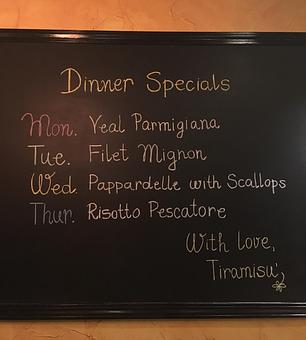 Dinner Specials
Mon. Veal Parmigiana
Tue. Filet Mignon
Wed. Pappardelle with Scallops
Thur. Risotto Pescatore
With love,
Tiramisu',